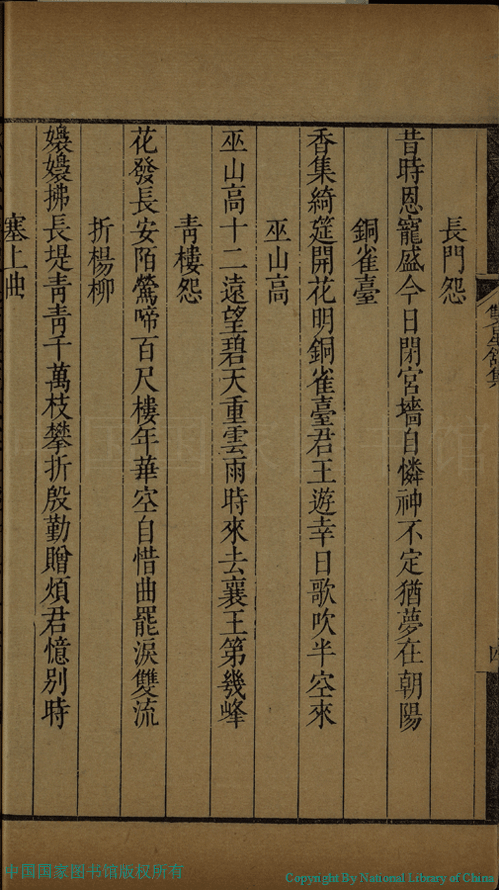 長門怨
昔時恩寵盛今日閉宮墻自憐神不定猶夢在朝陽
銅雀臺
香集綺筵開花明銅雀臺君王遊幸日歌吹半空來
巫山高
巫山高十二遠望碧天重雲雨時來去襄王第幾峰
靑樓怨
花發長安陌鶯啼百尺樓年華空自惜曲罷淚雙流
折楊柳
嬝嬝拂長堤靑靑千萬枝攀折殷勤贈煩君憶別時
塞上曲
四
中国国家图书馆版权所有
Copyright By National Library of China